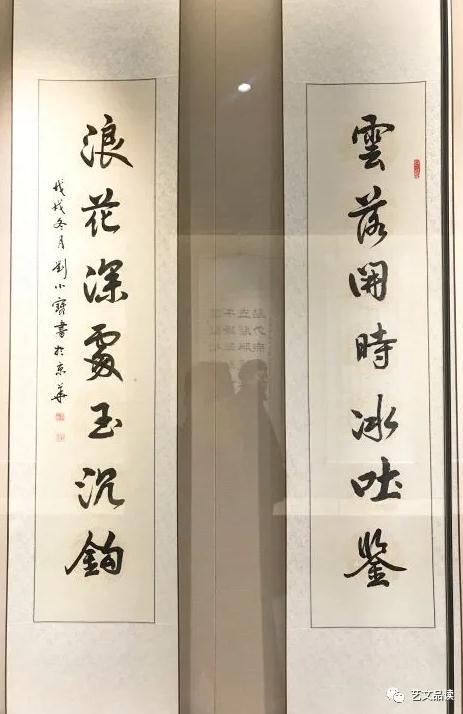 雲落開時冰吐鑒
浪花深處玉沉鉤
戊戌冬月劉小寶書於京華
艺文品读